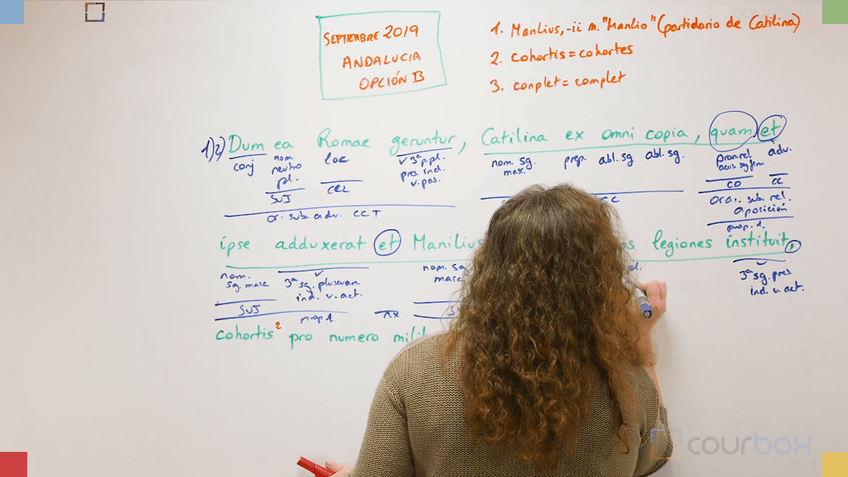 SEPTIEMBRE 2019
ANDALUCIA
OPCIÓN B
1. Manlius, -ii m. "Manlio" (partidario de Catilina)
2. Cohortis = cohortes
3. conplet = complet
1)2) Dum ea Romae geruntur, Catilina ex omni copia, quam et
conj nom. neutro pl. loc v 3ª p.pl. pres ind. v. pas. nom. sg. masc. prep. abl. sg abl. sg. pron. rel. acus sg fem adv.
SUJ CCL CO CC
or. sub. adv. CCT
ora. sub. rel. aposición
prop. 1.
ipse adduxerat et Manilius legiones instituit,
nom. sg. masc. 3ª sg. pluscuam ind. v. act. nom. sg masc 3ª sg. pres ind. v. act.
SUJ nx
prop 1
cohortis² pro numero
courbox